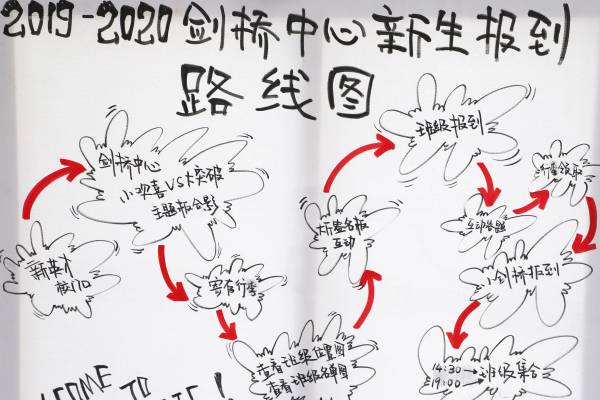 2019-2020 剑桥中心 新生报到
路线图
班级报到
剑桥中心
小欢喜VS大突破
主题板合影
行李领取
互动答题
新英才
校门口
寄存行李
互动
剑桥报到
查看班级位置图
查看班级名单图
14:30→班级集合
19:00→
TO